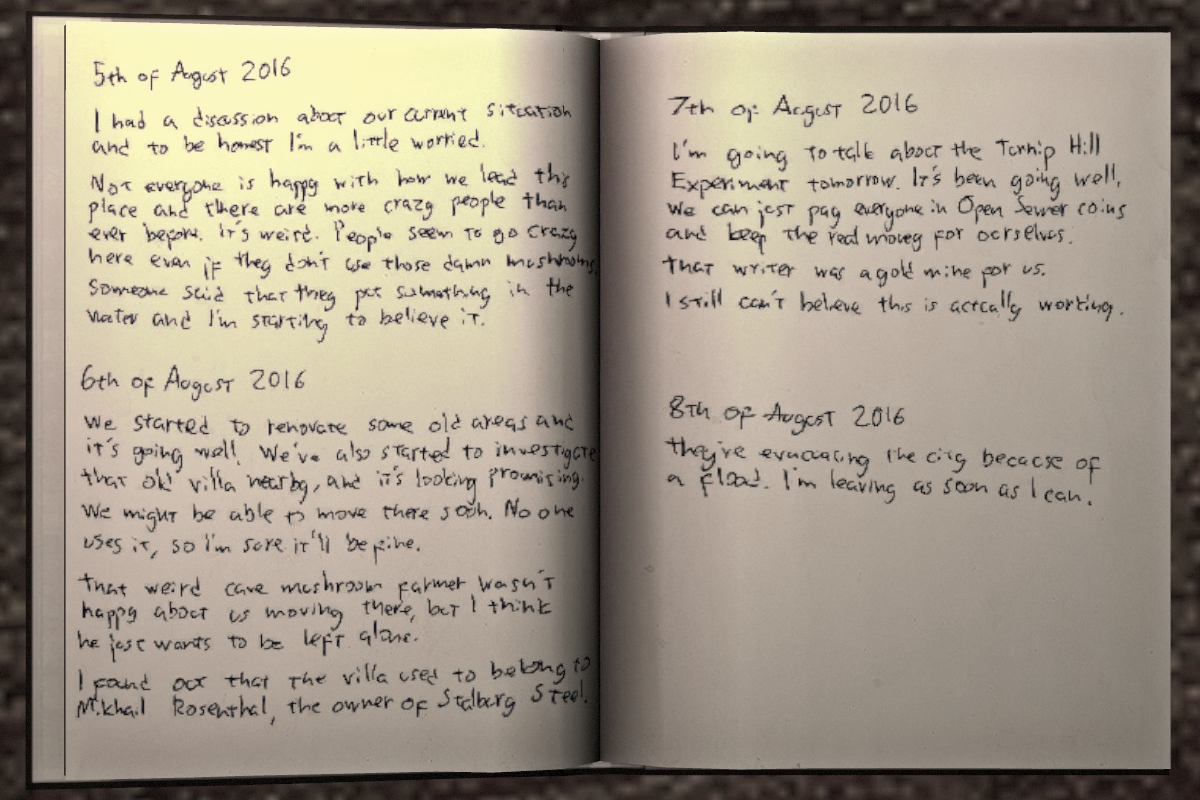 5th of August 2016
I had a discussion about our current situation
and to be honest I'm a little worried.
Not everyone is happy with how we lead this
place and there are more crazy people than
ever before. It's weird. People seem to go crazy
here even if they don't use those damn mushrooms.
Someone said that they put something in the
water and I'm starting to believe it.
6th of August 2016
We started to renovate some old areas and
it's going well. We've also started to investigate
that old villa nearby, and it's looking promising.
We might be able to move there soon. No one
uses it, so I'm sure it'll be fine.
That weird cave mushroom farmer wasn't
happy about us moving there, but I think
he just wants to be left alone.
I found out that the villa used to belong to
Mikhail Rosenthal, the owner of Stalberg Steel.
7th of August 2016
I'm going to talk about the Turnip Hill
Experiment tomorrow. It's been going well,
we can just pay everyone in Open Sewer coins
and keep the real money for ourselves.
That writer was a gold mine for us.
I still can't believe this is actually working.
8th of August 2016
They're evacuating the city because of
a flood. I'm leaving as soon as I can.